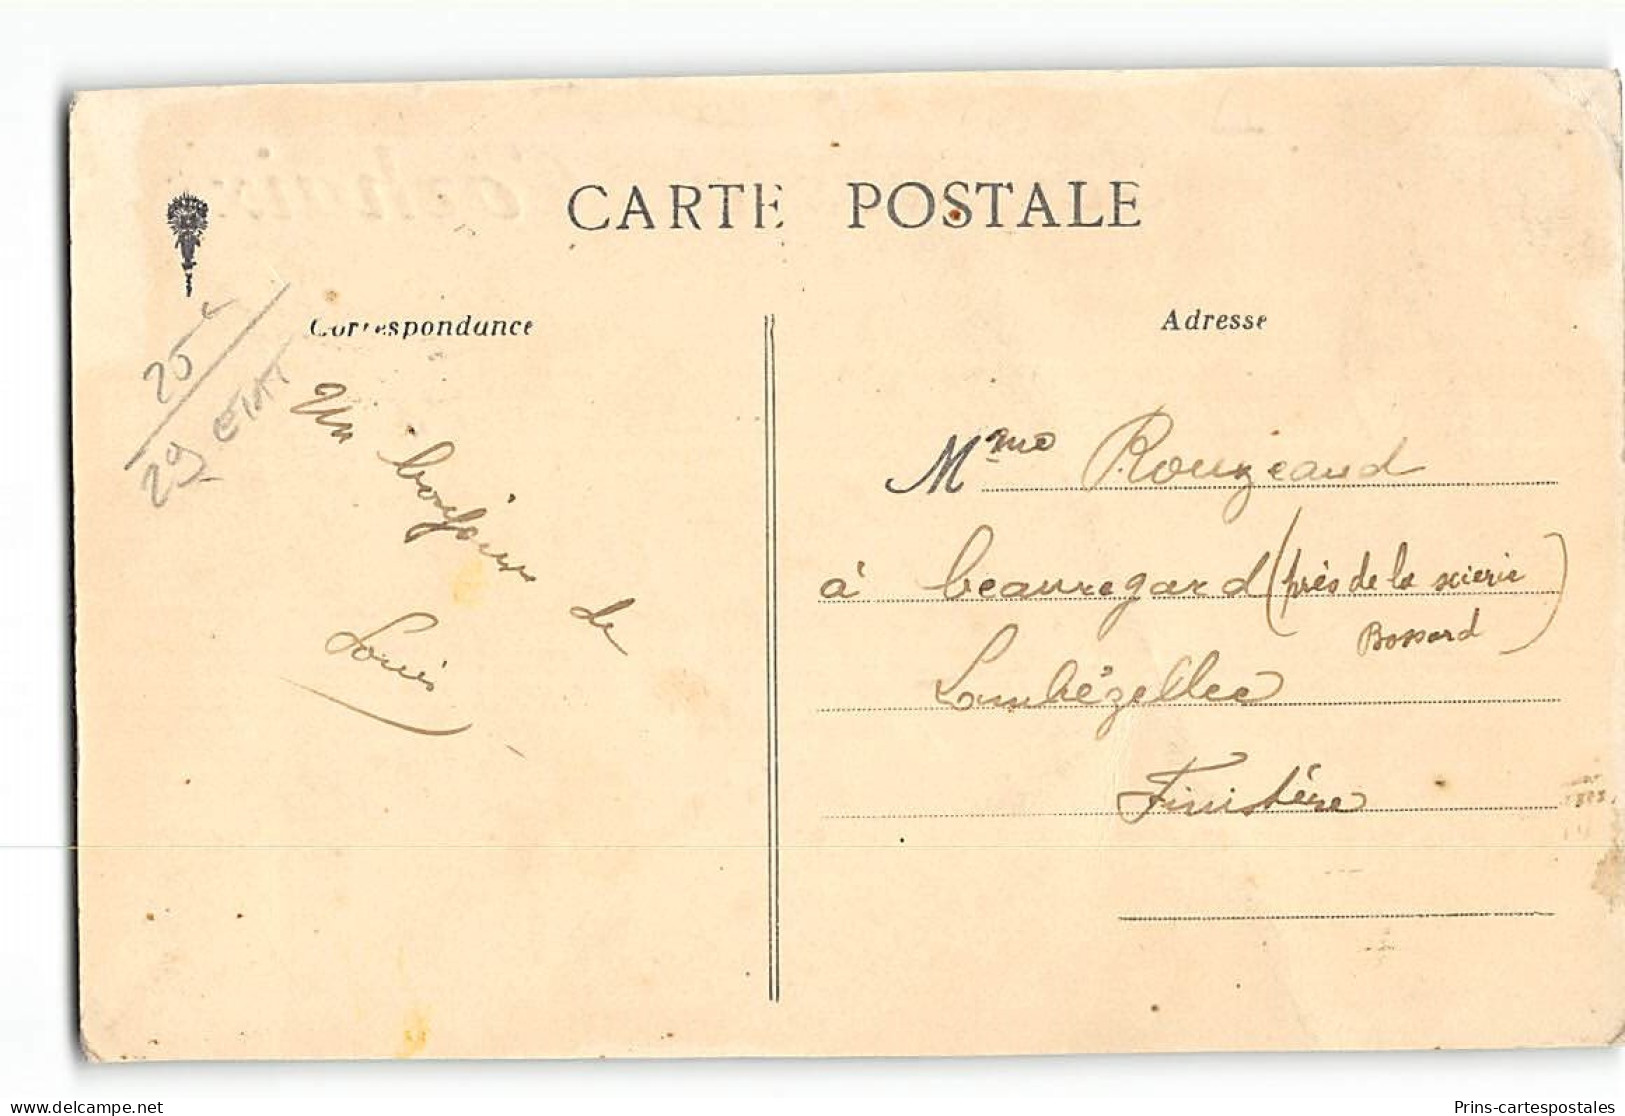 CARTE POSTALE
Correspondance
Adresse
20
29 ETAT
Un bonjour de
Louis
Mme Rouzeaud
à beauregard (près de la scierie
Bossard)
Lambézellec
Finistère
www.delcampe.net
Prins-cartespostales